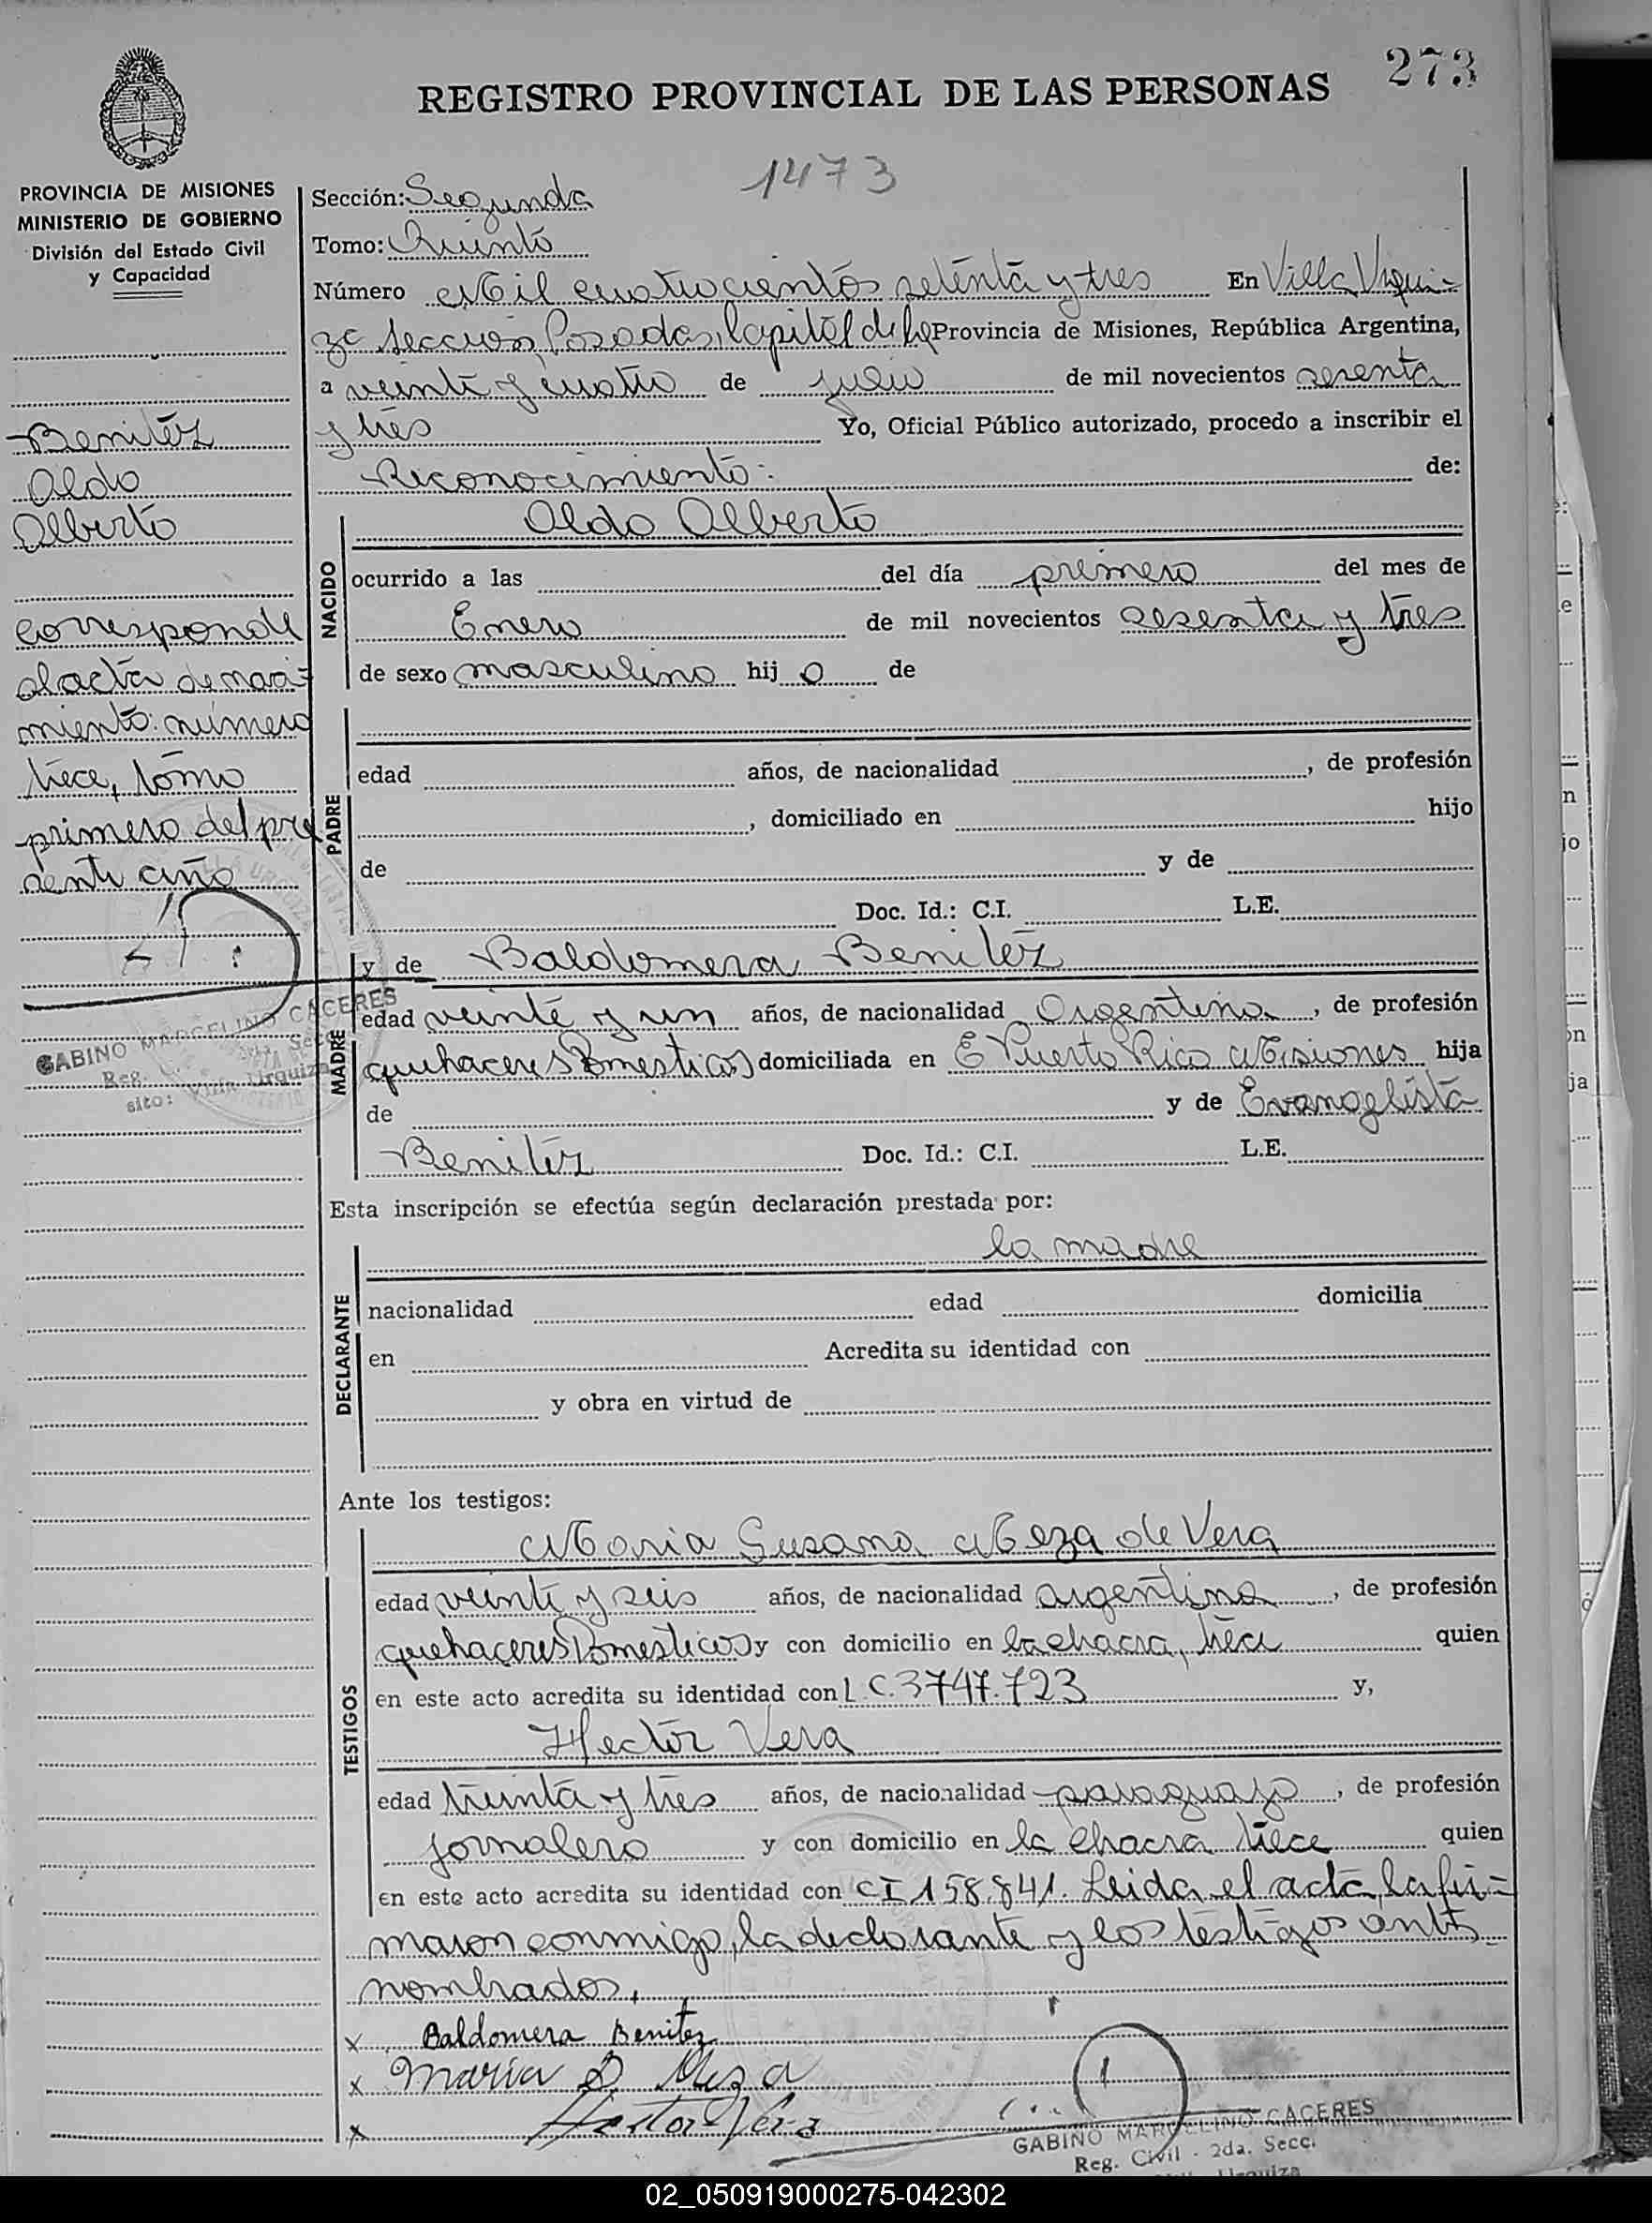 273
REGISTRO PROVINCIAL DE LAS PERSONAS
1473
PROVINCIA DE MISIONES
MINISTERIO DE GOBIERNO
División del Estado Civil
y Capacidad
Benitéz
Aldo
Alberto
corresponde
al acta de naci-
miento: número
trece, tomo
primero del pre
sente año
GABINO MARCELINO CACERES
Reg.
sito: Villa Urquiza
Sección: Segunda
Tomo: Quinto
Número Mil cuatrocientos setenta y tres En Villa Urqui-
za Sección Posadas, Capital de la Provincia de Misiones, República Argentina,
a veinte y cuatro de julio de mil novecientos setenta
y tres Yo, Oficial Público autorizado, procedo a inscribir el
Reconocimiento: de:
NACIDO
Aldo Alberto
ocurrido a las del día primero del mes de
Enero de mil novecientos sesenta y tres
de sexo masculino hij o de
PADRE
edad años, de nacionalidad , de profesión
, domiciliado en hijo
de y de
Doc. Id.: C.I. L.E.
MADRE
y de Baldomera Benitéz
edad veinte y un años, de nacionalidad Argentina , de profesión
quehaceres Domesticos domiciliada en Puerto Rico Misiones hija
de y de Evangelista
Benitéz Doc. Id.: C.I. L.E.
Esta inscripción se efectúa según declaración prestada por:
la madre
DECLARANTE
nacionalidad edad domicilia
en Acredita su identidad con
y obra en virtud de
Ante los testigos:
TESTIGOS
Maria Susana Meza de Vera
edad veinte y seis años, de nacionalidad argentina , de profesión
quehaceres Domesticos y con domicilio en la chacra, trece quien
en este acto acredita su identidad con L.C. 3747.723 y,
Hector Vera
edad treinta y tres años, de nacionalidad paraguayo , de profesión
jornalero y con domicilio en la chacra trece quien
en este acto acredita su identidad con CI 158.841. Leida el acta, la fir-
maron conmigo, la declarante y los testigos antes
nombrados,
x Baldomera Benitez
x Maria S. Meza
x Hector Vera
GABINO MARCELINO CACERES
Reg. Civil - 2da. Secc.
Urquiza
02_050919000275-042302